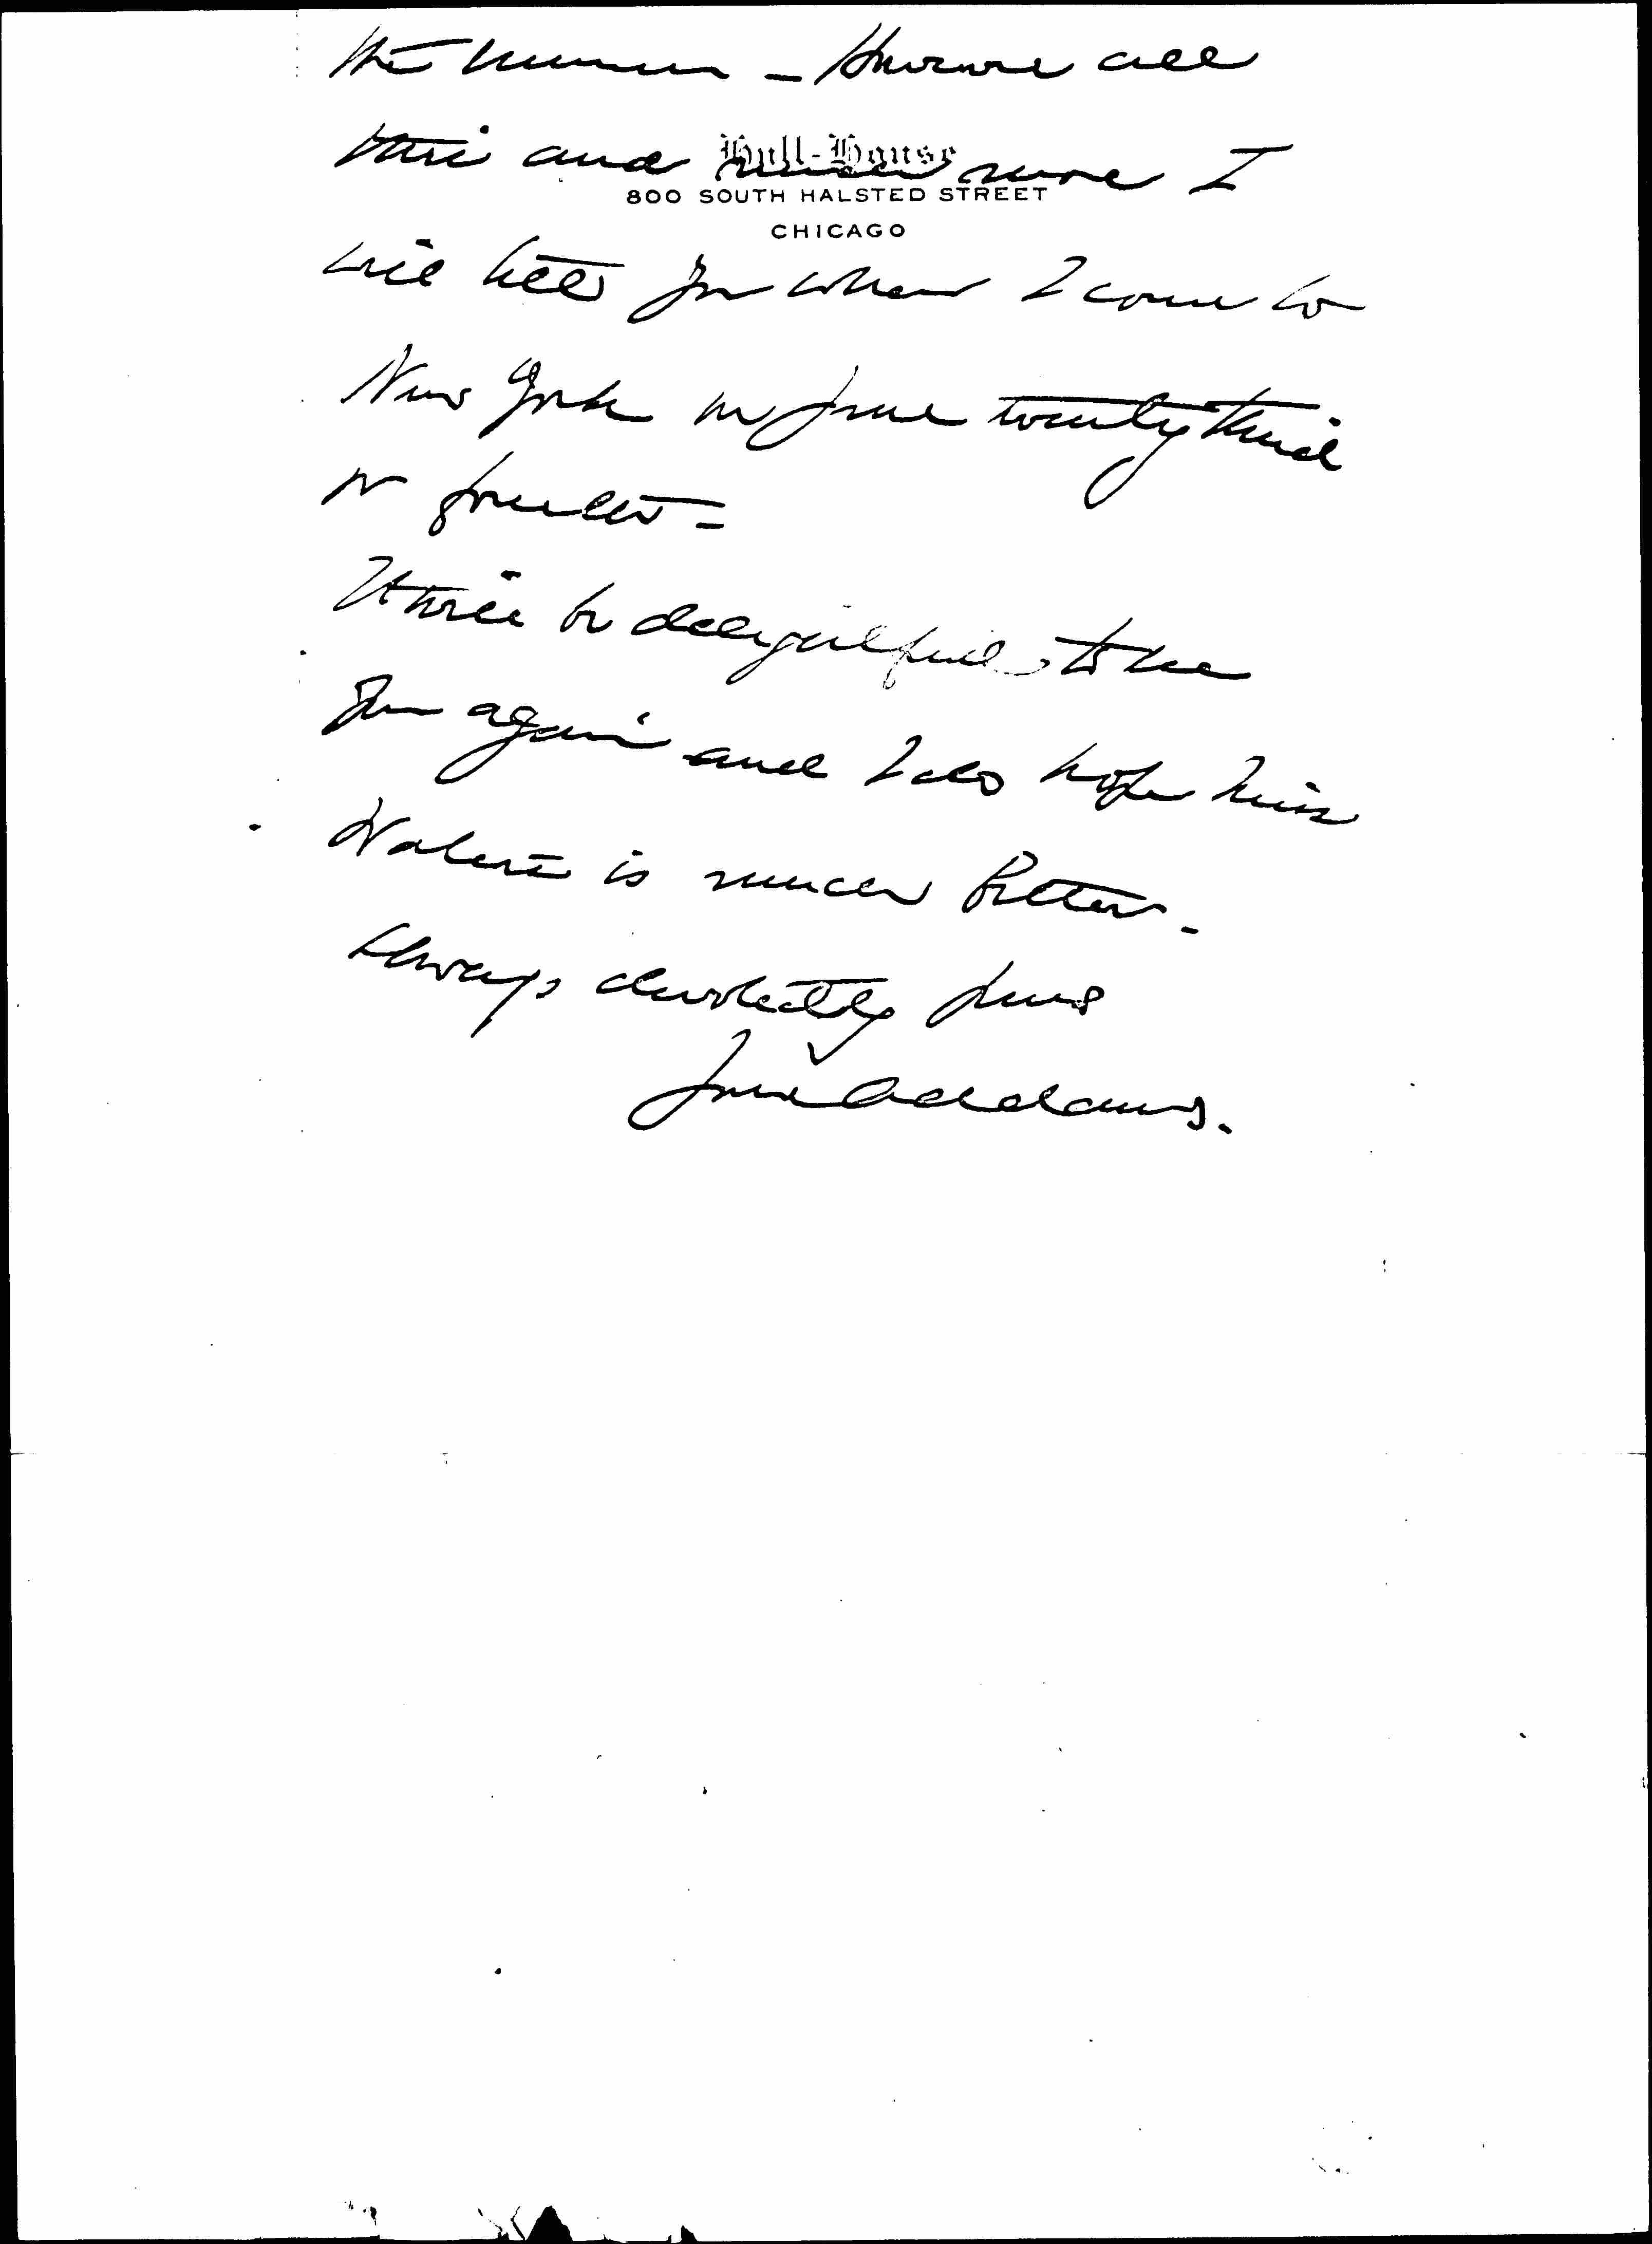 the summer – However all
this and much more I
Hull-House
800 SOUTH HALSTED STREET
CHICAGO
will tell you when I come to
New York on June twenty third
or fourth –
It will be delightful to see
you again and I do hope Miss
Wald is much better –
Always devotedly yours
Jane Addams.